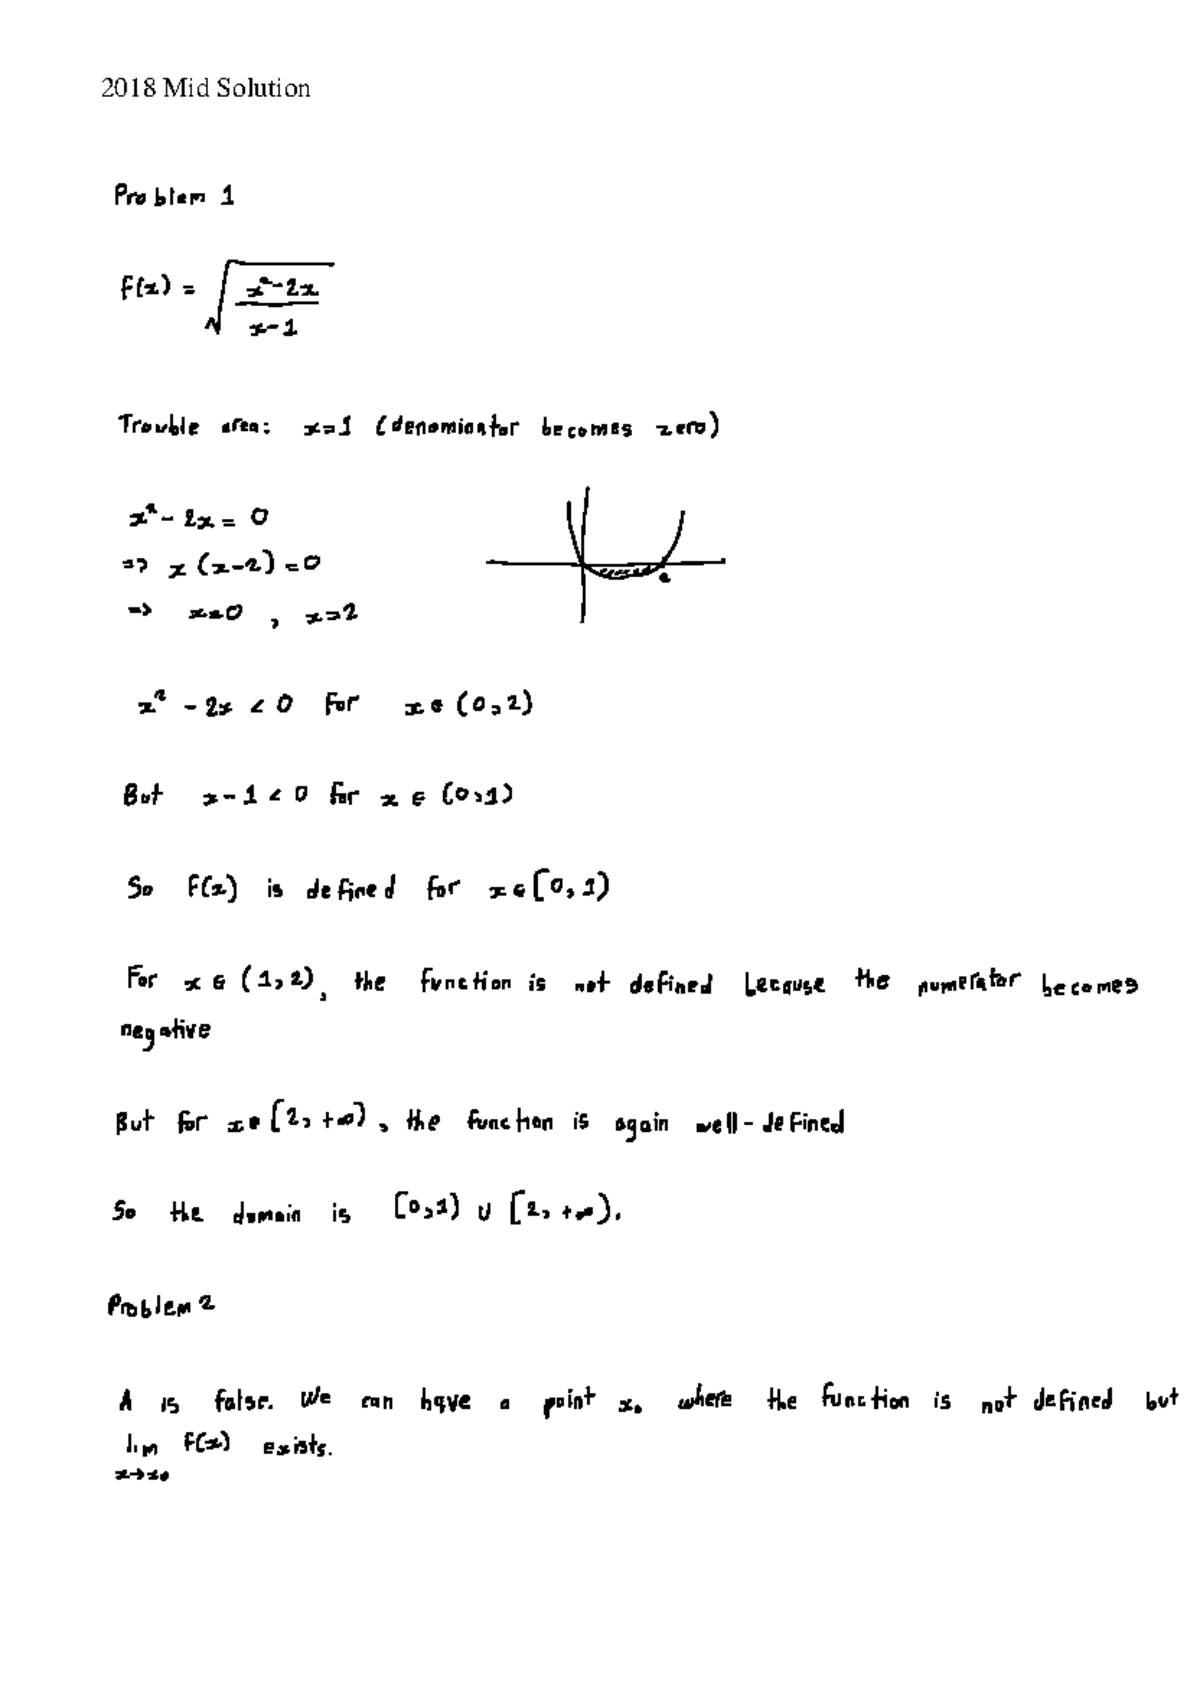 2018 Mid Solution
Problem 1
f(x) = √((x²-2x)/(x-1))
Trouble area: x=1 (denominator becomes zero)
x² - 2x = 0
=> x (x-2) = 0
=> x=0 , x=2
2
x² - 2x < 0 for x ∈ (0,2)
But x-1 < 0 for x ∈ (0,1)
So f(x) is defined for x ∈ [0,1)
For x ∈ (1,2), the function is not defined because the numerator becomes
negative
But for x ∈ [2, +∞), the function is again well-defined
So the domain is [0,1) ∪ [2, +∞).
Problem 2
A is false. We can have a point x₀ where the function is not defined but
lim f(x) exists.
x→x₀